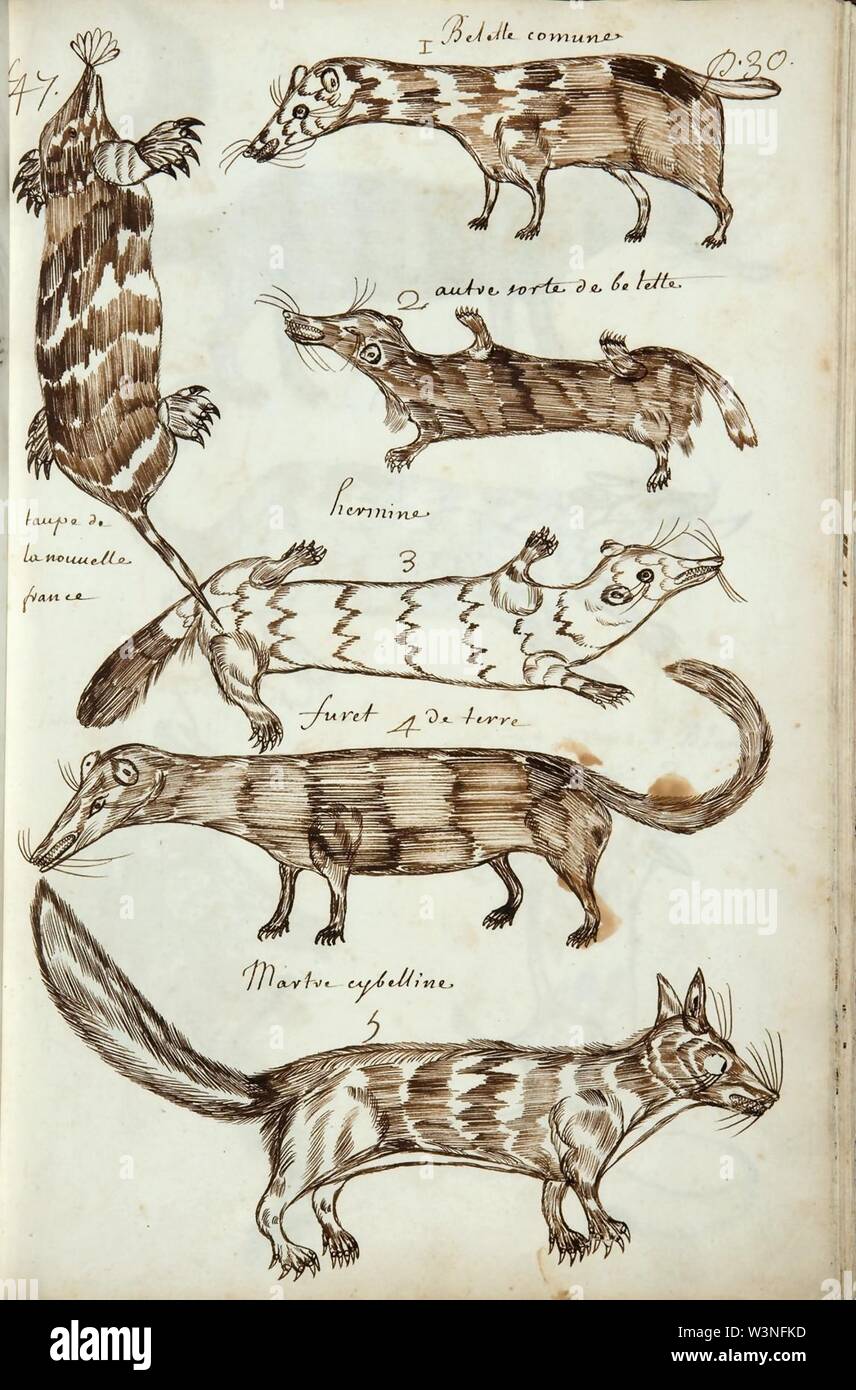 47.
I Belette comune
p. 30.
2 autre sorte de belette
hermine
3
taupe de
la nouuelle
france
furet 4 de terre
Martre cybelline
5
alamy
alamy
Image ID: W3NFKD
www.alamy.com